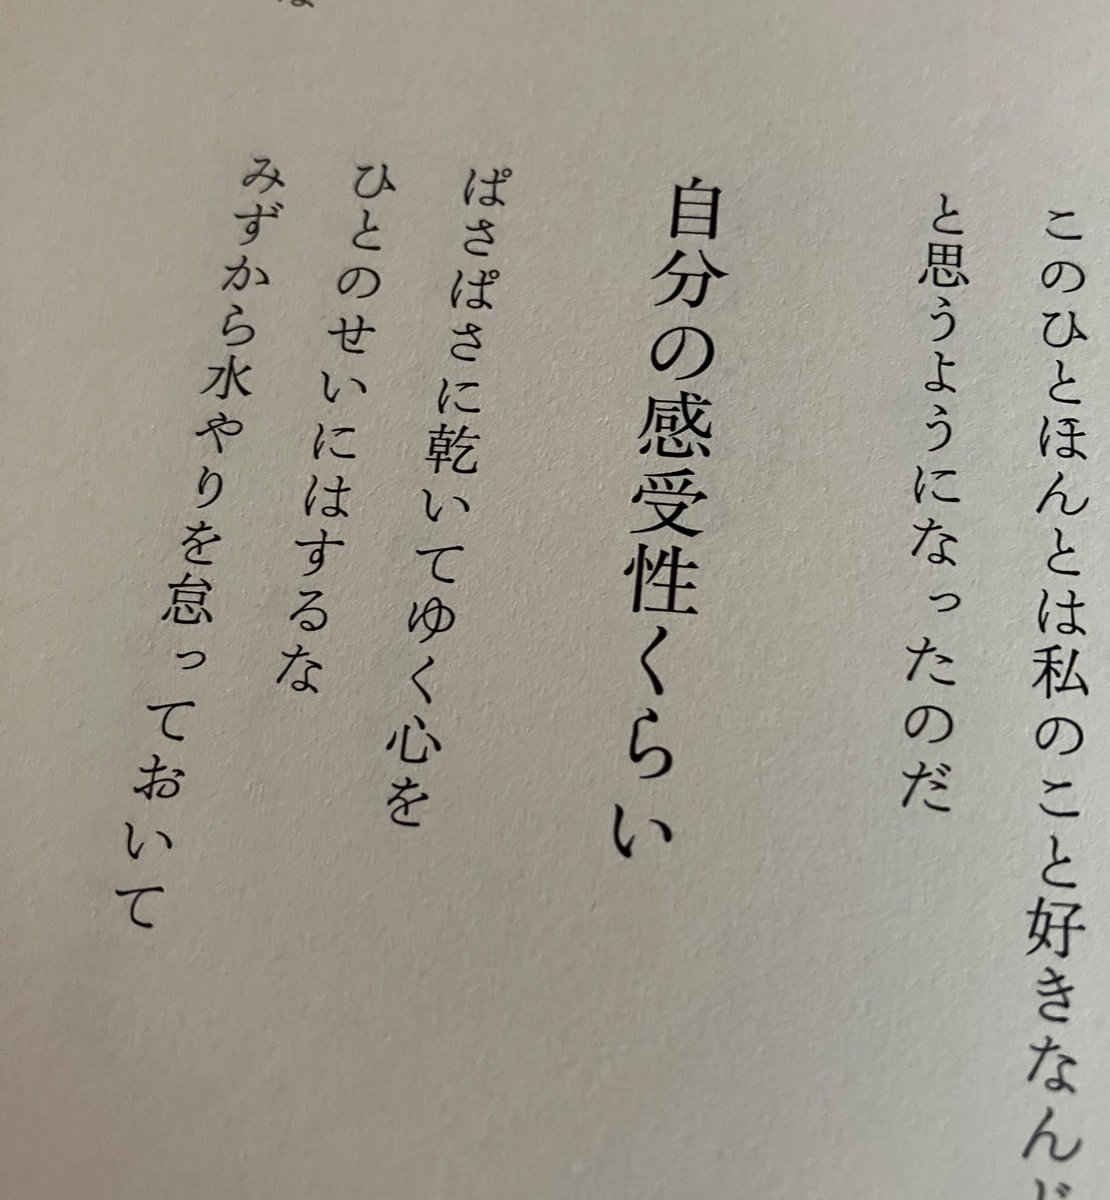 このひとほんとは私のこと好きなん
と思うようになったのだ
自分の感受性くらい
ぱさぱさに乾いてゆく心を
ひとのせいにはするな
みずから水やりを怠っておいて